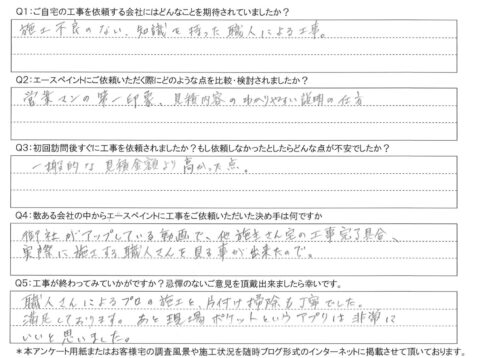 Q1：ご自宅の工事を依頼する会社にはどんなことを期待されていましたか？
施工不良のない、知識を持った職人による工事。
Q2：エースペイントにご依頼いただく際にどのような点を比較・検討されましたか？
営業マンの第一印象、見積内容のわかりやすい説明の仕方
Q3：初回訪問後すぐに工事を依頼されましたか？もし依頼しなかったとしたらどんな点が不安でしたか？
一般的な見積金額より高かった点。
Q4：数ある会社の中からエースペイントに工事をご依頼いただいた決め手は何ですか
御社がアップしている動画で、他施主さん宅の工事完了具合、
実際に施工する職人さんを見る事が出来たので。
Q5：工事が終わってみていかがですか？忌憚のないご意見を頂戴出来ましたら幸いです。
職人さんによるプロの施工と、片付け掃除も丁寧でした。
満足しております。あと現場ポケットというアプリは非常に
いいと思いました。
＊本アンケート用紙またはお客様宅の調査風景や施工状況を随時ブログ形式のインターネットに掲載させて頂いております。